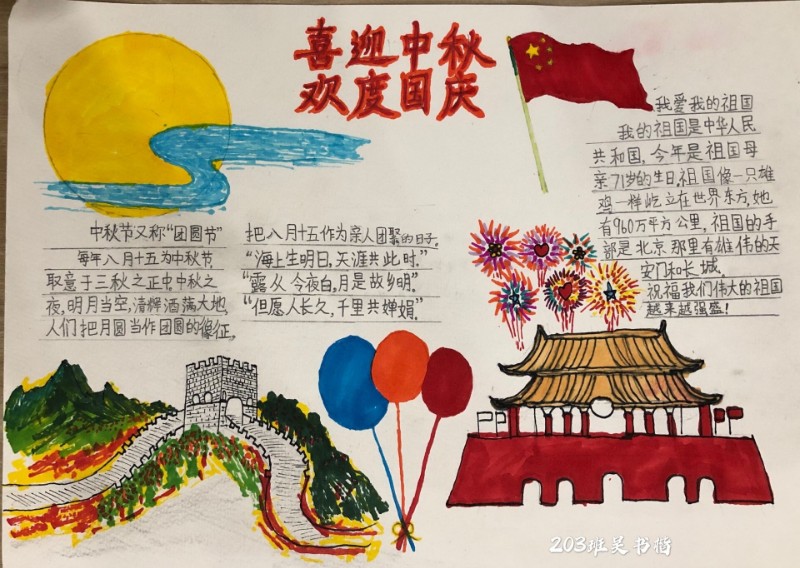 喜迎中秋
欢度国庆
中秋节又称“团圆节”
每年八月十五为中秋节,
取意于三秋之正中,中秋之
夜,明月当空,清辉洒满大地,
人们把月圆当作团圆的像征,
把八月十五作为亲人团聚的日子。
“海上生明日,天涯共此时。”
“露从今夜白,月是故乡明。”
“但愿人长久,千里共婵娟。”
我爱我的祖国
我的祖国是中华人民
共和国,今年是祖国母
亲71岁的生日,祖国像一只雄
鸡一样屹立在世界东方,她
有960万平方公里,祖国的手
部是北京那里有雄伟的天
安门和长城.
祝福我们伟大的祖国
越来越强盛!
203班吴书